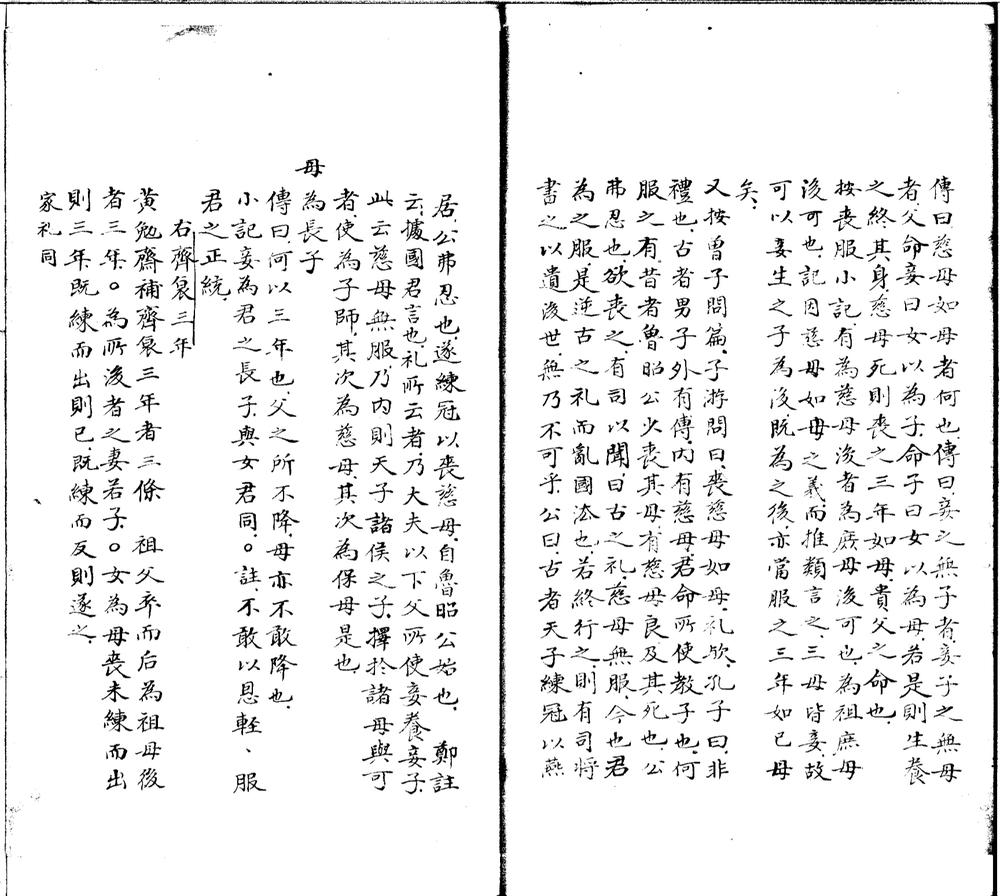 傳曰慈母如母者何也傳曰妾之無子者妾子之無母
者父命妾曰女以為子命子曰女以為母若是則生養
之終其身慈母死則喪之三年如母貴父之命也
按喪服小記有為慈母後者為庶母後可也為祖庶母
後可也記因慈母如母之義而推類言之三母皆妾故
可以妾生之子為後既為之後亦當服之三年如已母
矣
又按曾子問篇子游問曰喪慈母如母礼欤孔子曰非
禮也古者男子外有傅內有慈母君命所使教子也何
服之有昔者魯昭公少喪其母有慈母良及其死也公
弗忍也欲喪之有司以聞曰古之礼慈母無服今也君
為之服是逆古之礼而亂國法也若終行之則有司將
書之以遺後世無乃不可乎公曰古者天子練冠以燕
居公弗忍也遂練冠以喪慈母自魯昭公始也 鄭註
云據國君言也礼所云者乃大夫以下父所使妾養妾子
此云慈母無服乃內則天子諸侯之子擇於諸母與可
者使為子師其次為慈母其次為保母是也
母
為長子
傳曰何以三年也父之所不降母亦不敢降也
小記妾為君之長子與女君同○註不敢以恩輕、服
君之正統
右齊衰三年
黃勉齋補齊衰三年者三條 祖父卒而后為祖母後
者三年○為所後者之妻若子○女為母喪未練而出
則三年既練而出則已既練而反則遂之
家礼同